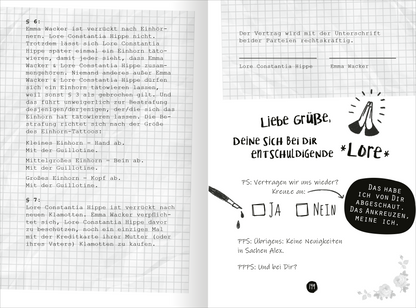 § 6:
Emma Wacker ist verrückt nach Einhör-
nern. Lore Constantia Hippe nicht.
Trotzdem lässt sich Lore Constantia
Hippe später einmal ein Einhorn täto-
wieren, damit jeder sieht, dass Emma
Wacker & Lore Constantia Hippe zusam-
mengehören. Niemand anderes außer Emma
Wacker & Lore Constantia Hippe dürfen
sich ein Einhorn tätowieren lassen,
weil sonst § 3 als gebrochen gilt. Und
das führt unweigerlich zur Bestrafung
desjenigen/derjenigen, der/die sich das
Einhorn hat tätowieren lassen. Die Be-
strafung richtet sich nach der Größe
des Einhorn-Tattoos:
Kleines Einhorn – Hand ab.
Mit der Guillotine.
Mittelgroßes Einhorn – Bein ab.
Mit der Guillotine.
Großes Einhorn – Kopf ab.
Mit der Guillotine.
§ 7:
Lore Constantia Hippe ist verrückt nach
neuen Klamotten. Emma Wacker verpflich-
tet sich, Lore Constantia Hippe davor
zu beschützen, noch ein einziges Mal
mit der Kreditkarte ihrer Mutter (oder
ihres Vaters) Klamotten zu kaufen.
Der Vertrag wird mit der Unterschrift
beider Parteien rechtskräftig.
Lore Constantia Hippe Emma Wacker
Liebe Grüße,
Deine sich bei dir
entschuldigende *Lore*
PS: Vertragen wir uns wieder?
Kreuze an:
JA NEIN
DAS HABE
ICH VON DIR
ABGESCHAUT.
DAS ANKREUZEN,
MEINE ICH.
PPS: Übrigens: Keine Neuigkeiten
in Sachen Alex.
PPPS: Und bei Dir?